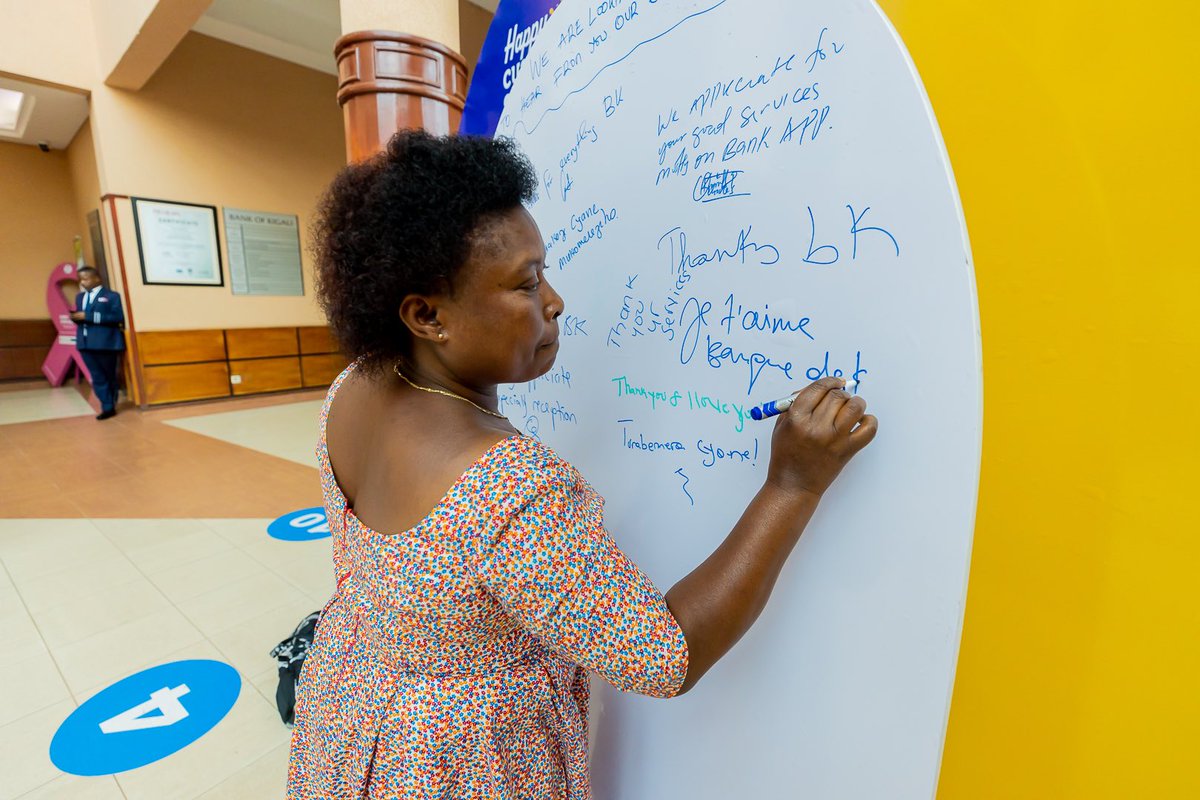 Happy
WE ARE LOOKI
HEAR FROM YOU OUR
for everything BK
We APPRECIATE for
your good services
mostly on Bank APP.
Cyane
Thanks bk
Thank
you
yr
services
Je t'aime
banque de k
BK
reception
Thank you & I love you
Turabemera cyane!
BANK OF KIGALI
CERTIFICATE
10
4